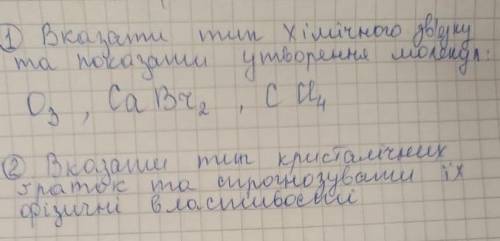 ① Вказати тип хімічного зв'язку
та показати утворення молекул:
O₃, CaBr₂, CCl₄
② Вказати тип кристалічних
ґраток та спрогнозувати їх
фізичні властивості